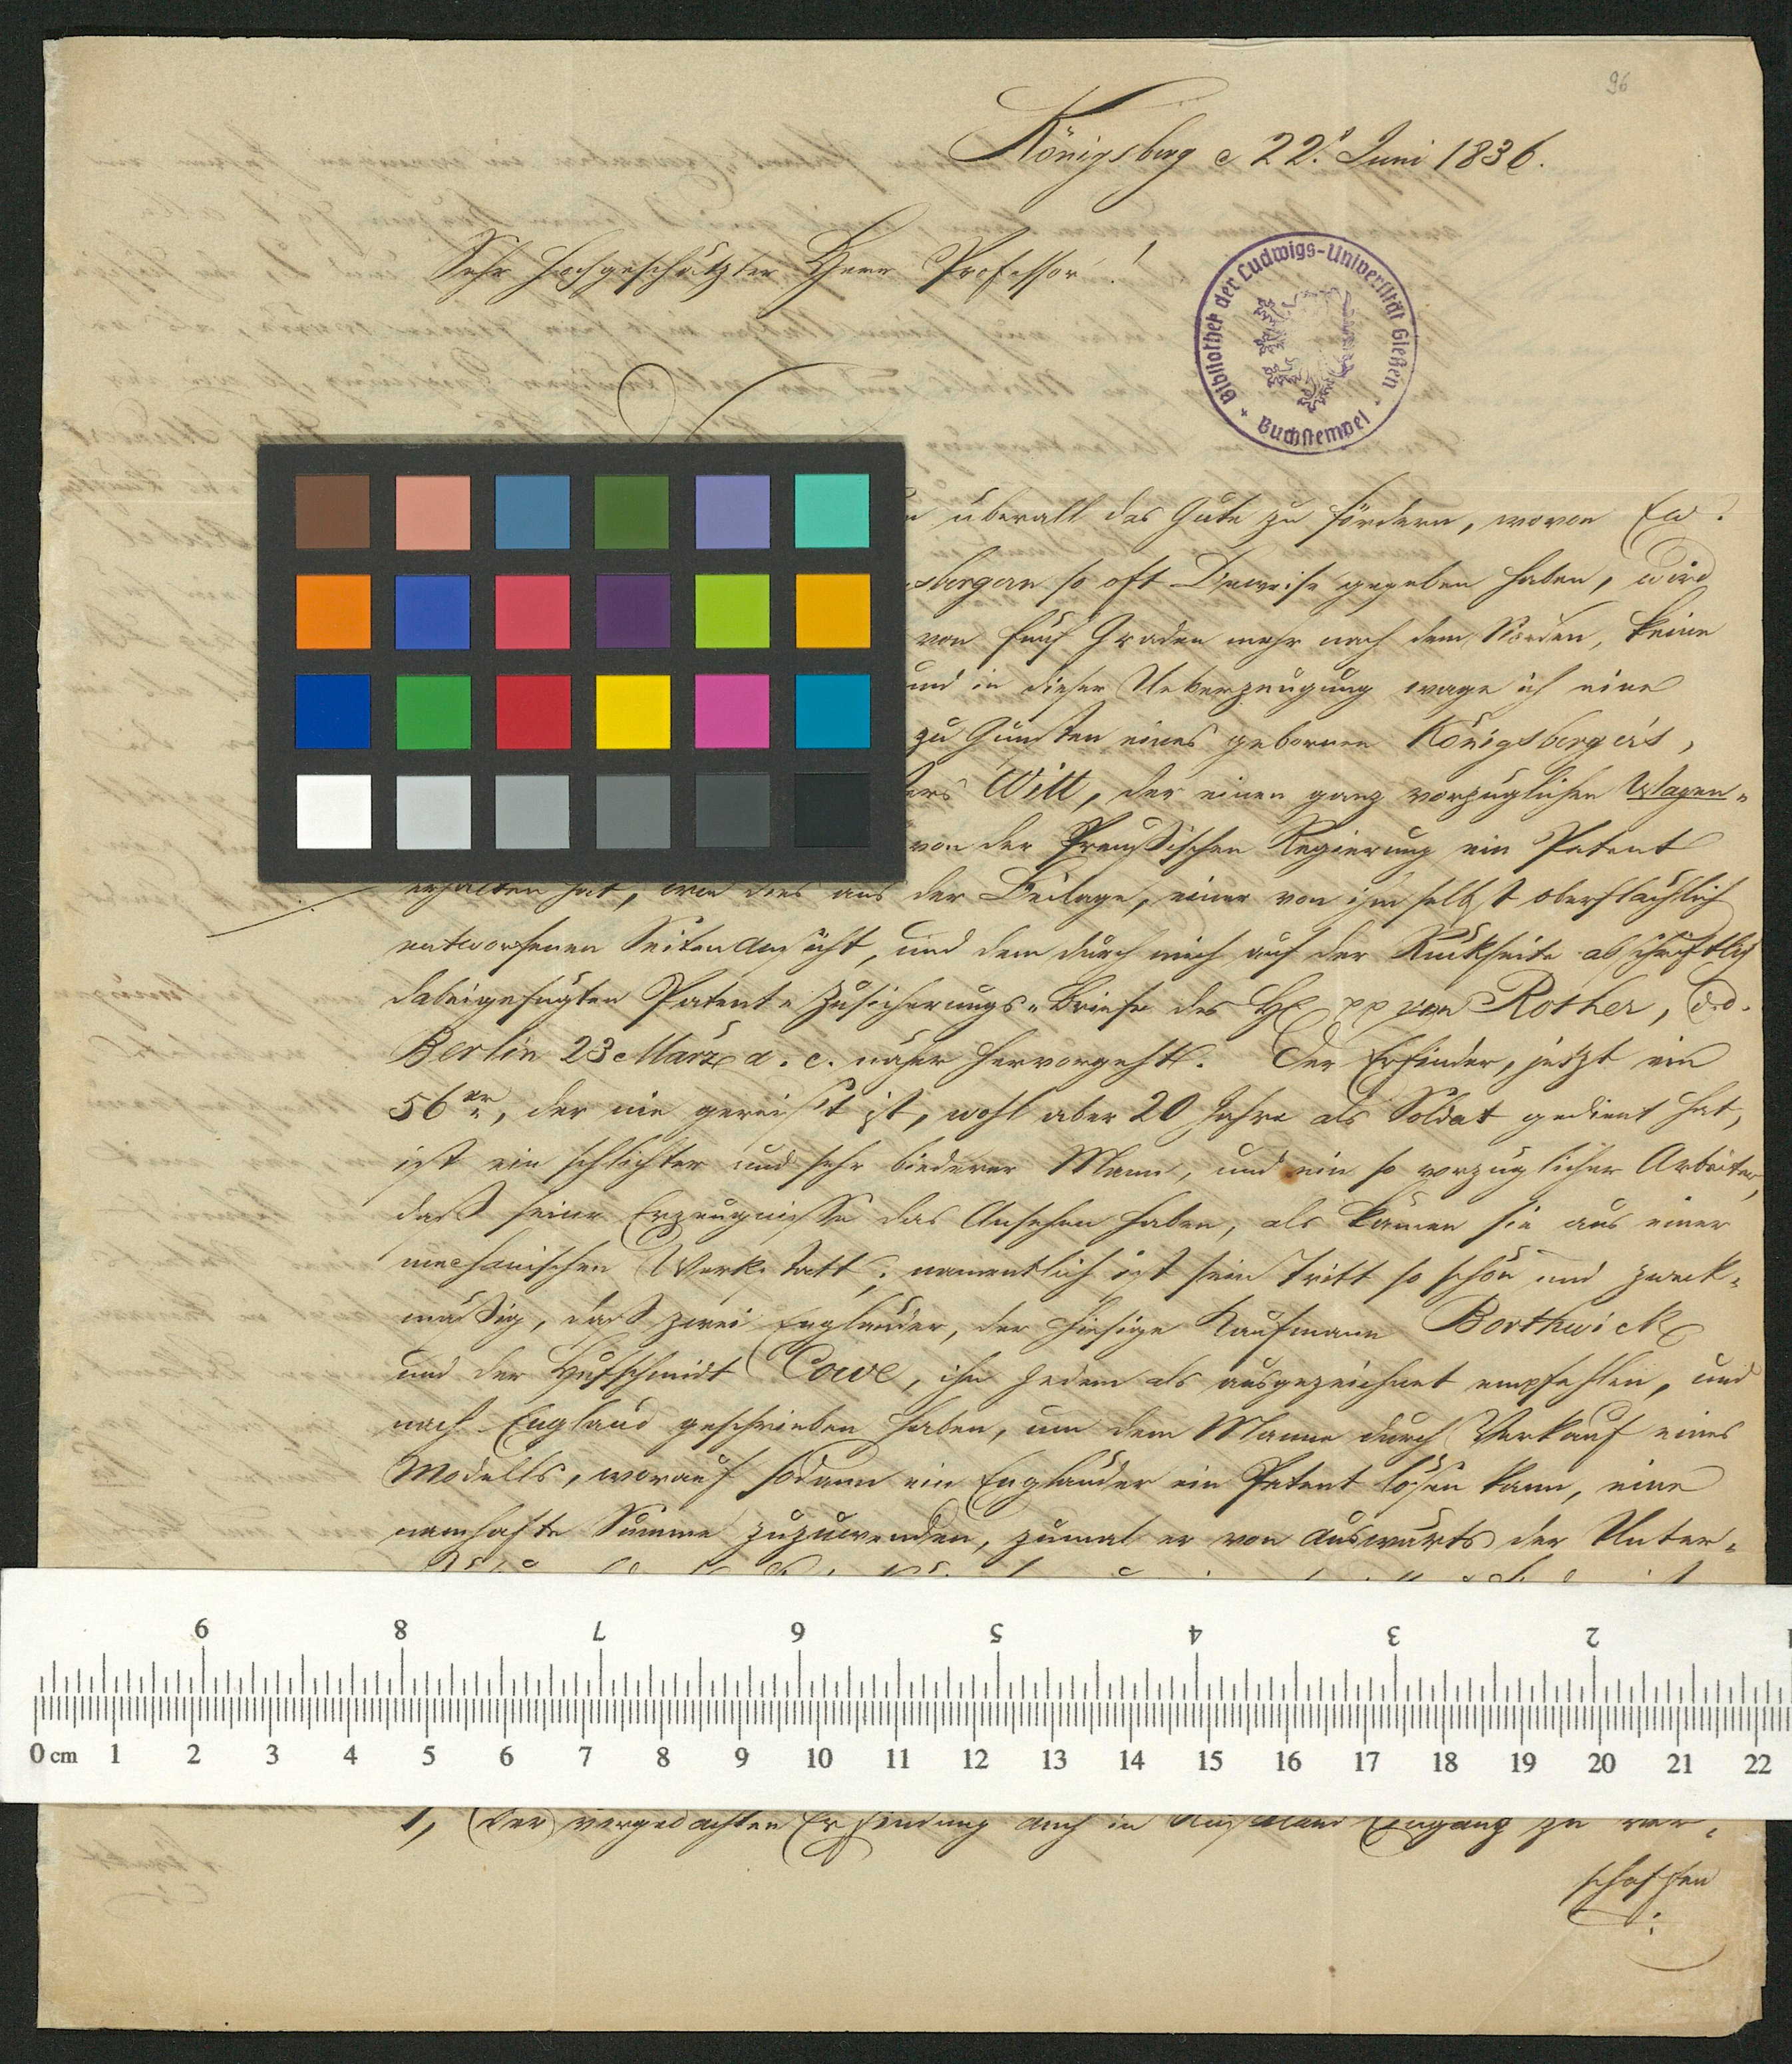 96
Königsberg d 22. Juni 1836.
Sehr hochgeschätzter Herr Professor!
Bibliothek der Ludwigs-Universität Gießen
Buchstempel
überall das Gute zu fördern, wovon Ew.
sbergern so oft Beweise gegeben haben, wird
von fünf Graden mehr nach dem Norden, keine
und in dieser Ueberzeugung wage ich eine
zu Gunsten eines gebornen Königsbergers,
ers Witt, der einen ganz vorzüglichen Wagen-
von der Preußischen Regierung ein Patent
erhalten hat, wie dies aus der Beilage, einer von ihm selbst oberflächlich
entworfenen Seitenansicht, und dem durch mich auf der Rückseite abschriftlich
dabeigefügten Patent-Zusicherungs-Briefe des H. pp von Rother, d.d.
Berlin 23 März a. c. näher hervorgeht. Der Erfinder, jetzt ein
56er, der nie gereist ist, wohl aber 20 Jahre als Soldat gedient hat,
ist ein schlichter und sehr biederer Mann, und ein so vorzüglicher Arbeiter,
daß seine Erzeugnisse das Ansehen haben, als kämen sie aus einer
mechanischen Werkstatt; namentlich ist sein Tritt so schön und zweck-
mäßig, daß zwei Engländer, der hiesige Kaufmann Borthwick
und der Hufschmidt Cowe, ihn Jedem als ausgezeichnet empfehlen, und
nach England geschrieben haben, um dem Manne durch Verkauf eines
Modells, worauf sodann ein Engländer ein Patent lösen kann, eine
namhafte Summe zuzuwenden, zumal er von auswärts der Unter-
9 8 7 6 5 4 3 2 1
0 cm 1 2 3 4 5 6 7 8 9 10 11 12 13 14 15 16 17 18 19 20 21 22
1, Der vorgedachten Erfindung auch in Rußland Eingang zu ver-
schaffen